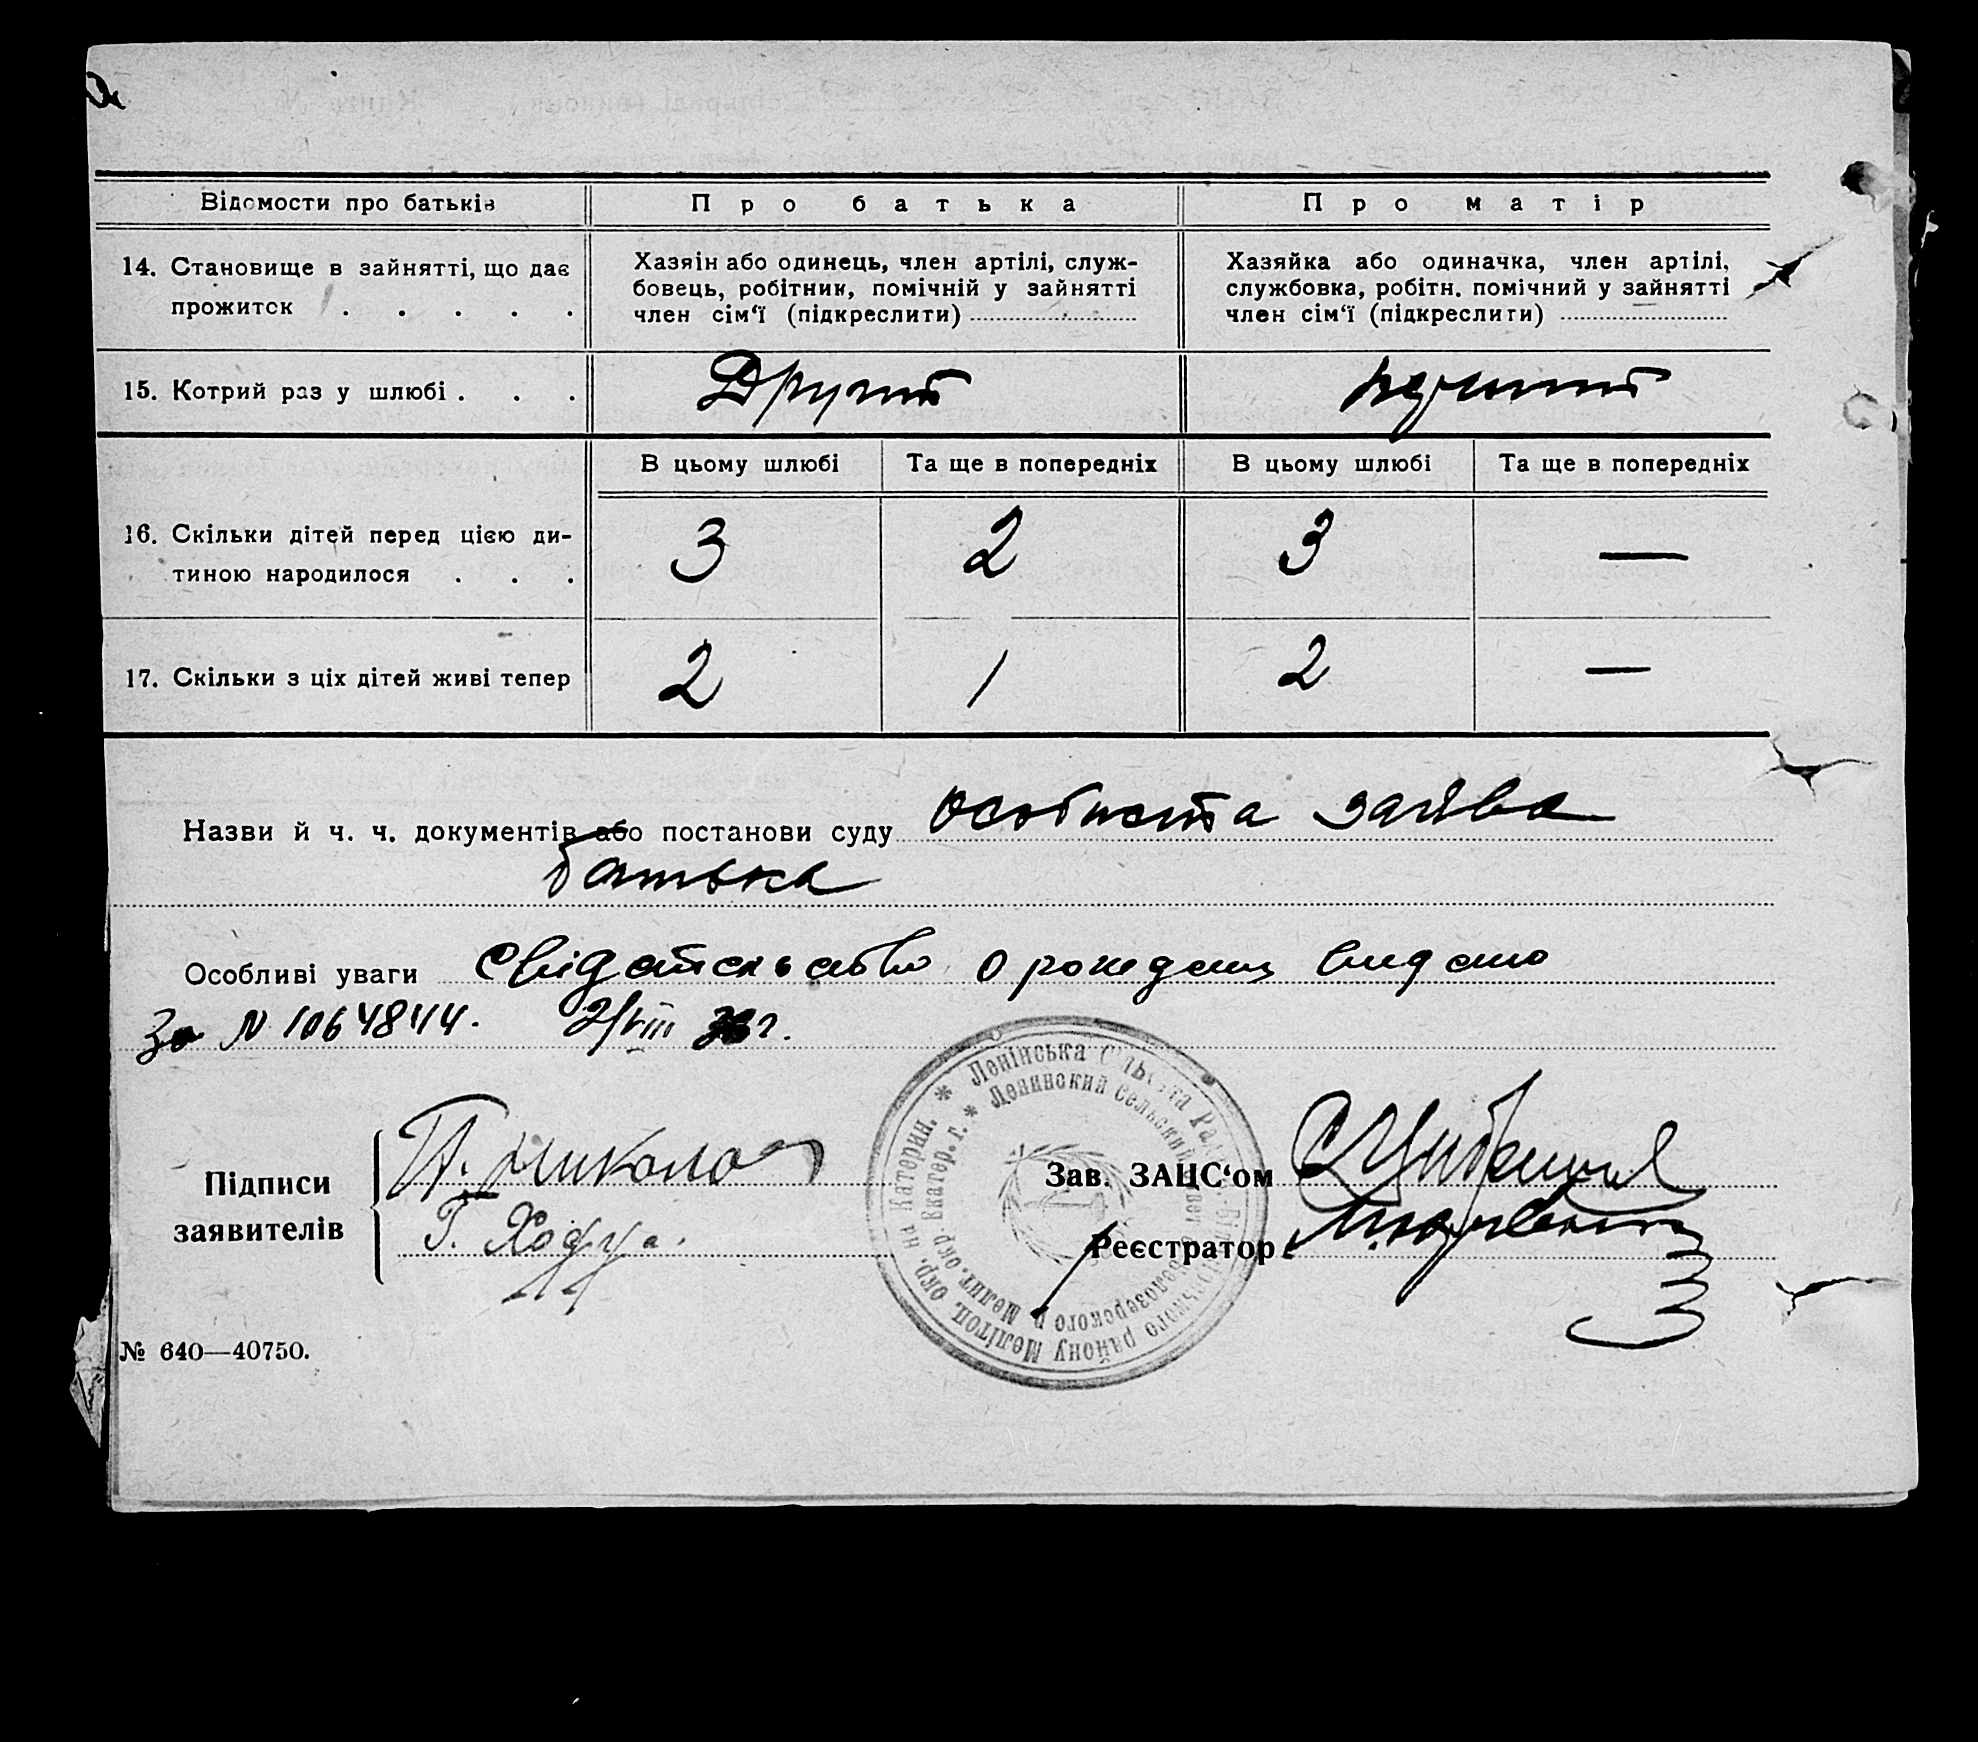 Відомости про батьків
Про батька
Про матір
14. Становище в зайнятті, що дає
прожиток . . . . .
Хазяїн або одинець, член артілі, служ-
бовець, робітник, помічній у зайнятті
член сім‘ї (підкреслити)
Хазяйка або одиначка, член артілі,
службовка, робітн. помічний у зайнятті
член сім‘ї (підкреслити)
15. Котрий раз у шлюбі . . .
Другий
перший
В цьому шлюбі
Та ще в попередніх
В цьому шлюбі
Та ще в попередніх
16. Скільки дітей перед цією ди-
тиною народилося . . .
3
2
3
—
17. Скільки з ціх дітей живі тепер
2
1
2
—
Назви й ч. ч. документів або постанови суду особиста заява
батька
Особливі уваги свідательство о рождении видано
За N 1064844. 2/VIII г.
Ленінська Сільська Рада Білозірського району Мелітоп. окр. на Катерин.
Ленинский сельский совет Белозерского р. Мелит. окр. Екатер. г.
Підписи
заявителів
Г. Ходуа.
Зав. ЗАЦС‘ом
Реєстратор
№ 640—40750.